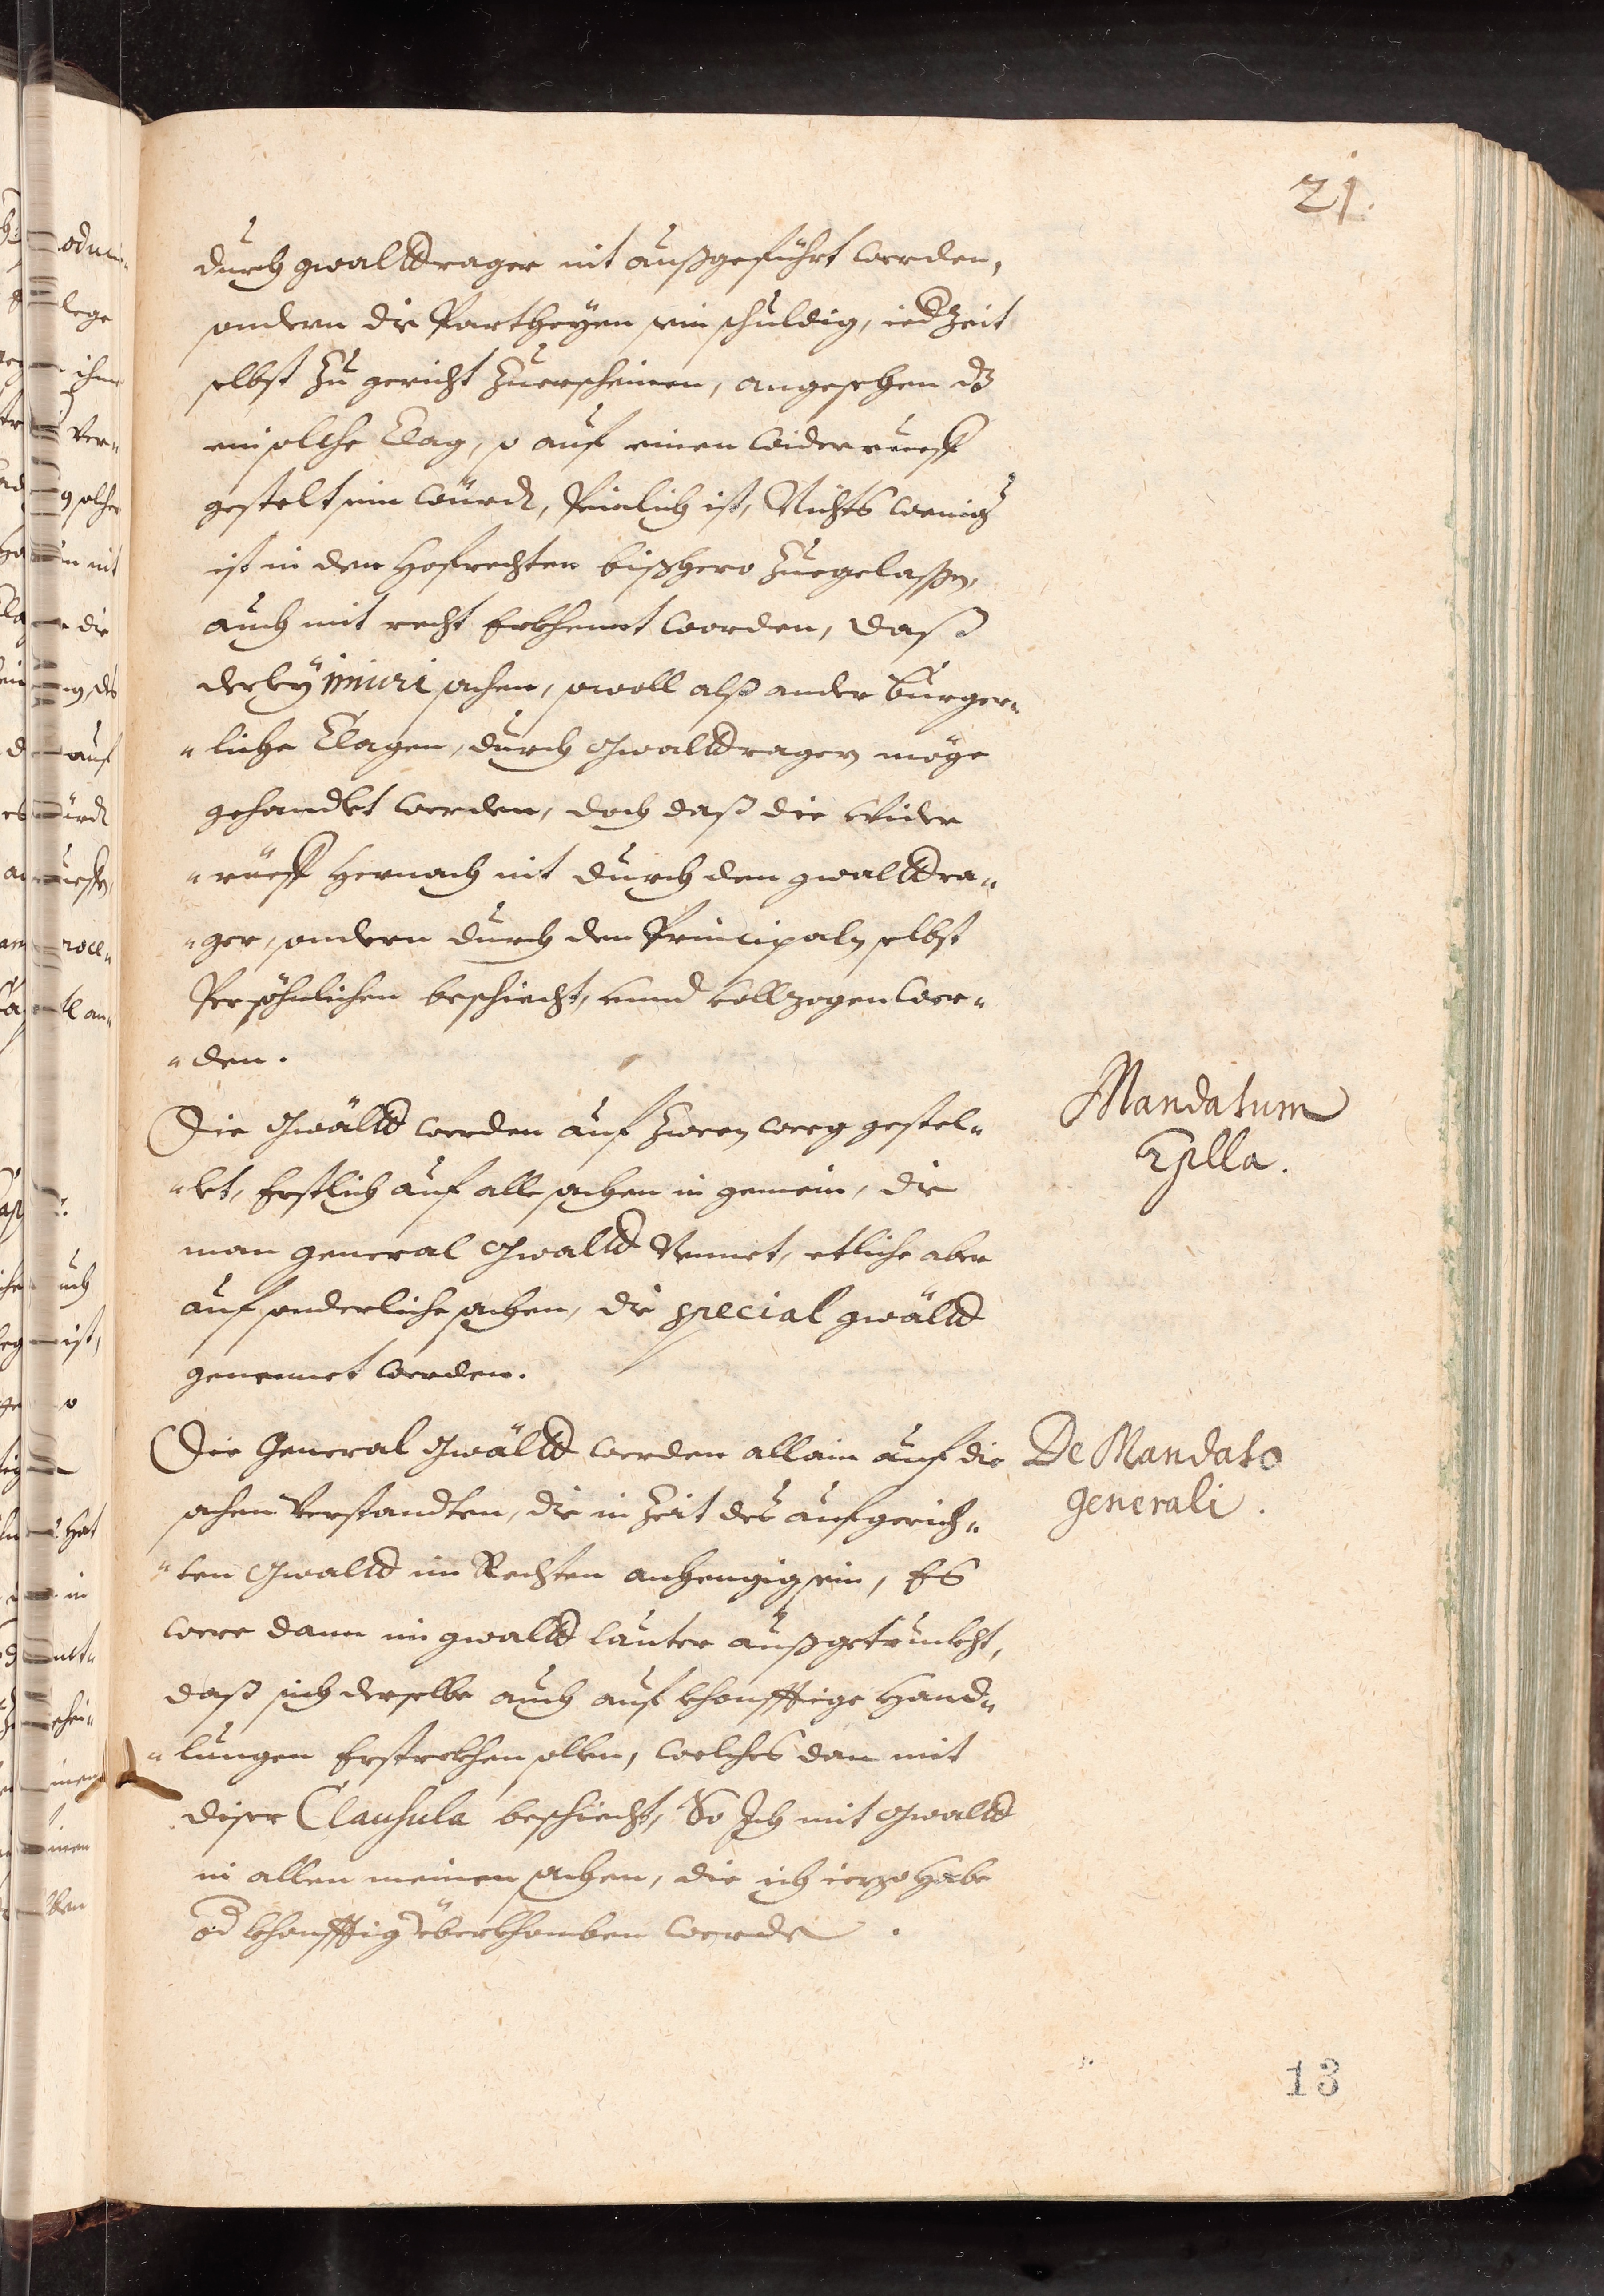 21.
durch gwalttrager nit außgeführt werden,
sondern die Partheyen sein schuldig, ied Zeit
selbst Zu gericht Zuerscheinen, angesehen dz
ein solche Clag, so auf einen widerrueff
gestelt sein würdt, Peinlich ist, Nichts wenigr
ist in den Hofrechten bißhero Zuegelassen,
auch mit recht Erkhent worden, daß
derley iniuri sachen, sowoll alß ander burger„
„liche Clagen, durch Gwalttrager möge
gehandlt werden, doch daß die Wider
„rüeff hernach nit durch den gwalttra„
„ger, sondern durch den Principaln selbst
Persöhnlichen beschiecht, vnnd vollzogen wer„
„den.
Mandatum
Die Gwäldt werden auf zween weeg gestel„
„let, Erstlich auf alle sachen in gemein, die
man general Gwaldt Nennet, etliche aber
auf sonderliche sachen, die special gwäldt
genennet werden.
Die General Gwäldt werden allain auf die
De Mandato
generali.
sachen Verstandten, die in Zeit des aufgerich„
„ten Gwaldt im Rechten anhengig sein, Es
were dann im gwaldt lauter außgetruckht,
daß sich derselbe auch auf khonfftige Hand„
„lungen Erstreckhen sollen, welches dan mit
diser Clausula beschiecht, So Ich mit Gwaldt
in allen meinen sachen, die ich iezo habe
od khonfftig überkhomben werde.
13